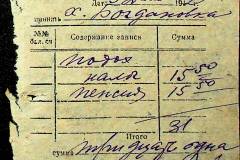 Дата
принять х. Богдановка
№№ бал. сч. Содержание записи Сумма
подох
налог 15 50
пенсия 15 50
Итого 31
сумма тридцать одна